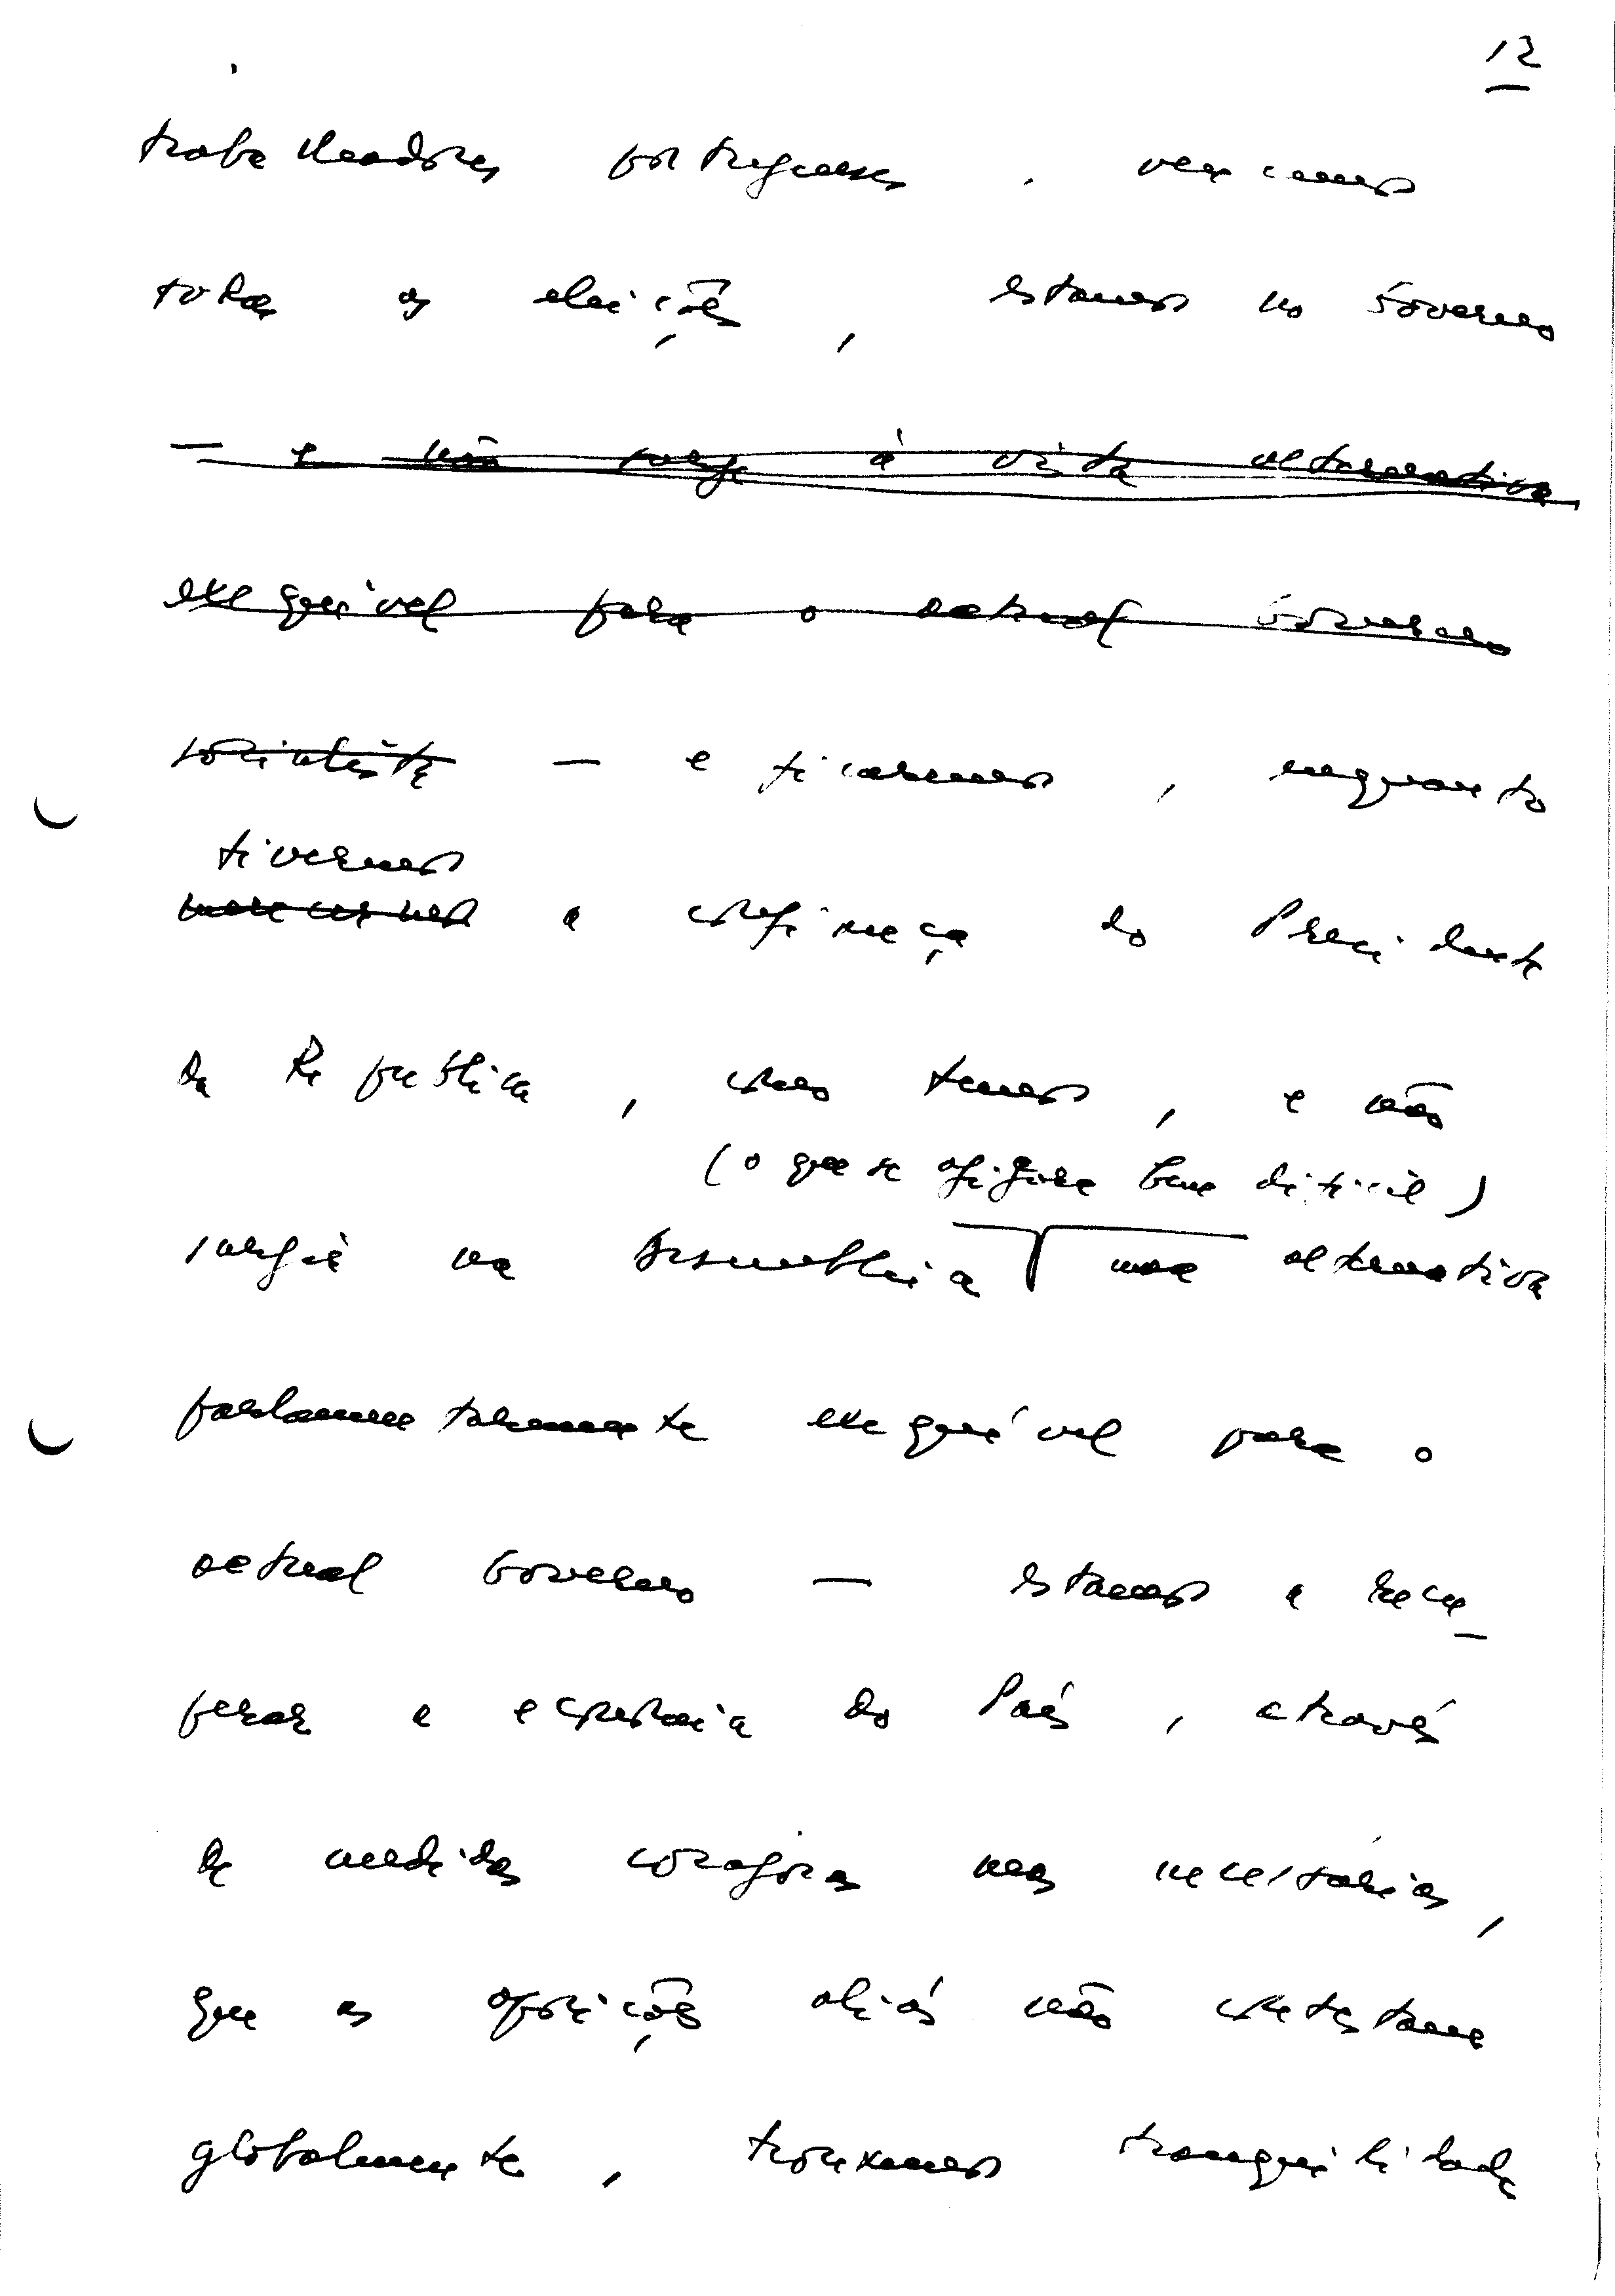 12
trabalhadores portugueses. vencemos
todas as eleições, estamos no Governo
— e não surge à vista alternativa
exequível para o actual Governo
socialista — e ficaremos, enquanto
tivermos
merecermos a confiança do Presidente
da República, como temos, e não
(o que se afigura bem difícil)
surgir na Assembleia uma alternativa
parlamentarmente exequível para o
actual Governo — estamos a recu-
perar a economia do País, através
de medidas corajosas mas necessárias,
que as oposições aliás não contestam
globalmente, trouxemos tranquilidade